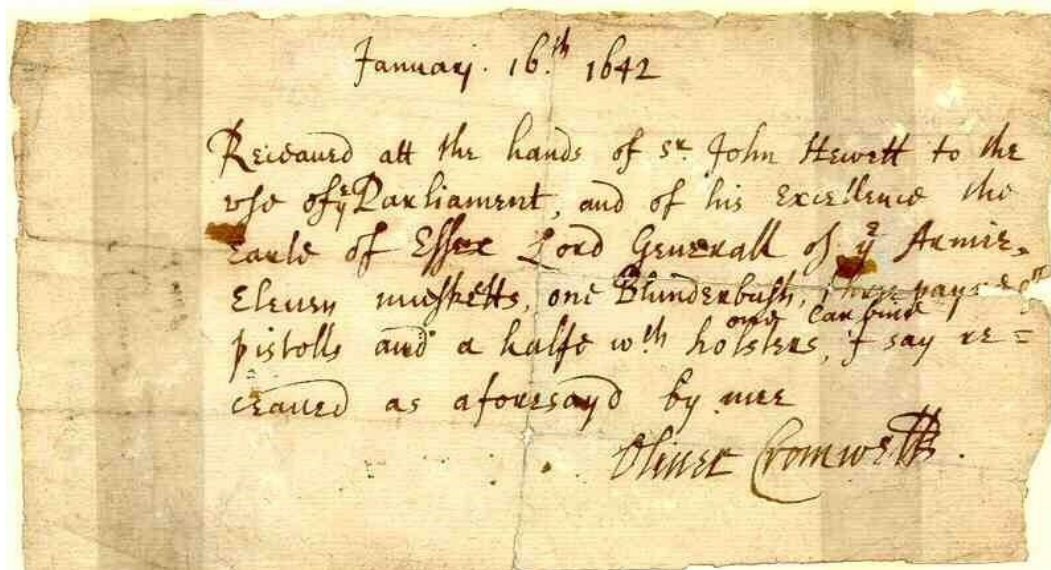 January. 16.th 1642
Receaued att the hands of Sr. John Hewett to the
vse of ye Parliament, and of his Excellence the
Earle of Essex Lord Generall of ye Armie,
Eleuen musketts, one Blunderbush, three payre of
one Carbine
pistolls and a halfe wth holsters, I say re=
ceaued as aforesayd by mee
Oliuer Cromwell.